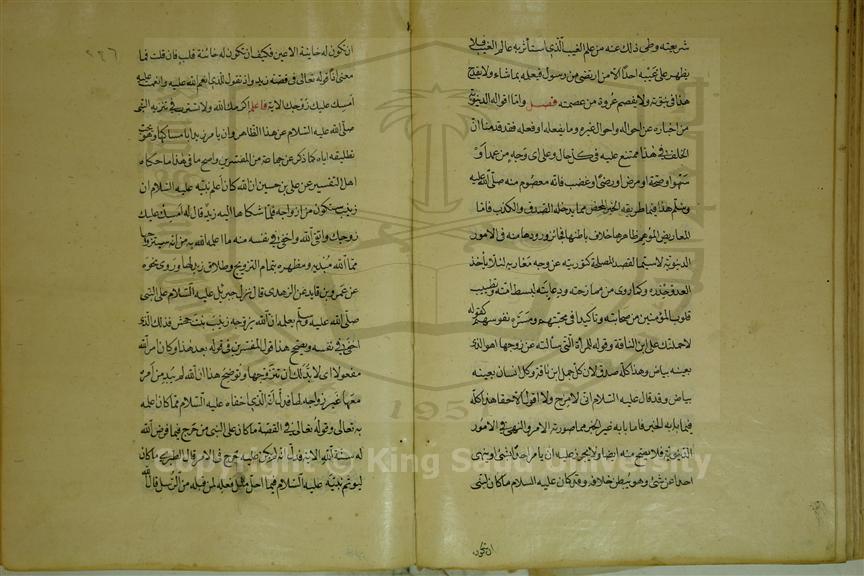 شريعته وطى ذلك عنه من علم الغيب الذى استأثر به عالم الغيب فلا
يظهر على غيبه احدا الا من ارتضى من رسول فيعلمه بما شاء ولا يقدح
هذا فى نبوته ولا يفصم عروة من عصمته فصل واما اقواله الدنيوية
من اخباره عن احواله واحوال غيره وما يفعله او فعله فقد قدمنا ان
الخلف فى هذا ممتنع عليه فى كل حال وعلى اى وجه من عمد او
سهو او صحة او مرض او رضى او غضب فانه معصوم منه صلى الله عليه
وسلم هذا فيما طريقه الخبر المحض مما يدخله الصدق والكذب فاما
المعاريض الموهم ظاهرها خلاف باطنها فجائز ورودها منه فى الامور
الدنيوية لا سيما لقصد المصلحة كتوريته عن وجه مغازيه لئلا ياخذ
العدو حذره وكما روى من ممازحته ودعابته لبسط امته وتطييب
قلوب المؤمنين من صحابته وتأكيدا فى محبتهم ومسرة نفوسهم كقوله
لاحملنك على ابن الناقة وقوله للمرأة التى سألته عن زوجها اهو الذى
بعينه بياض وهذا كله صدق لان كل جمل ابن ناقة وكل انسان بعينه
بياض وقد قال عليه السلام انى لامزح ولا اقول الا حقا هذا كله
فيما بابه الخبر فاما ما بابه غير الخبر مما صورته الامر والنهى فى الامور
الدنيوية فلا يصح منه ايضا ولا يجوز عليه ان يامر احدا بشئ او ينهى
احدا عن شئ وهو يبطن خلافه وقد قال عليه السلام ما كان لنبى
ان تكون
ان تكون له خاينة الاعين فكيف ان تكون له خائنة قلب فان قلت فما
معنى اذا قوله تعالى فى قصة زيد واذ تقول للذى انعم الله عليه وانعمت عليه
امسك عليك زوجك الاية فاعلم اكرمك الله ولا تسترب فى تنزيه النبى
صلى الله عليه السلام عن هذا الظاهر وان يامر زيدا بامساكها وهو يحب
تطليقه اياه كما ذكر عن جماعة من المفسرين واصح ما فى هذا ما حكاه
اهل التفسير عن على بن حسين ان الله كان اعلم نبيه عليه السلام ان
زينب ستكون من ازواجه فلما شكاها اليه زيد قال له امسك عليك
زوجك واتق الله واخفى فى نفسه منه ما اعلمه الله به من انه سيتزوجها
مما الله مبديه ومظهره بتمام التزويج وطلاق زيد لها وروى نحوه
عن عمرو بن فايد عن الزهرى قال نزل جبريل عليه السلام على النبى
صلى الله عليه وسلم يعلمه ان الله يزوجه زينب بنت جحش فذلك الذى
اخفى فى نفسه ويصحح هذا قول المفسرين فى قوله بعد هذا وكان امر الله
مفعولا اى لا بد لك ان تتزوجها ويوضح هذا ان الله لم يبد من امره
معها غير زواجه لها فدل انه الذى اخفاه عليه السلام مما كان اعلمه
به تعالى وقوله تعالى فى القصة ما كان على النبى من حرج فيما فرض الله
له سنة الله الاية فدل انه لم يكن عليه حرج فى الامر قال الطبرى ما كان
ليوثم نبيه عليه السلام فيما احل مثل فعله لمن قبله من الرسل قال الله
1957
Copyright © King Saud University